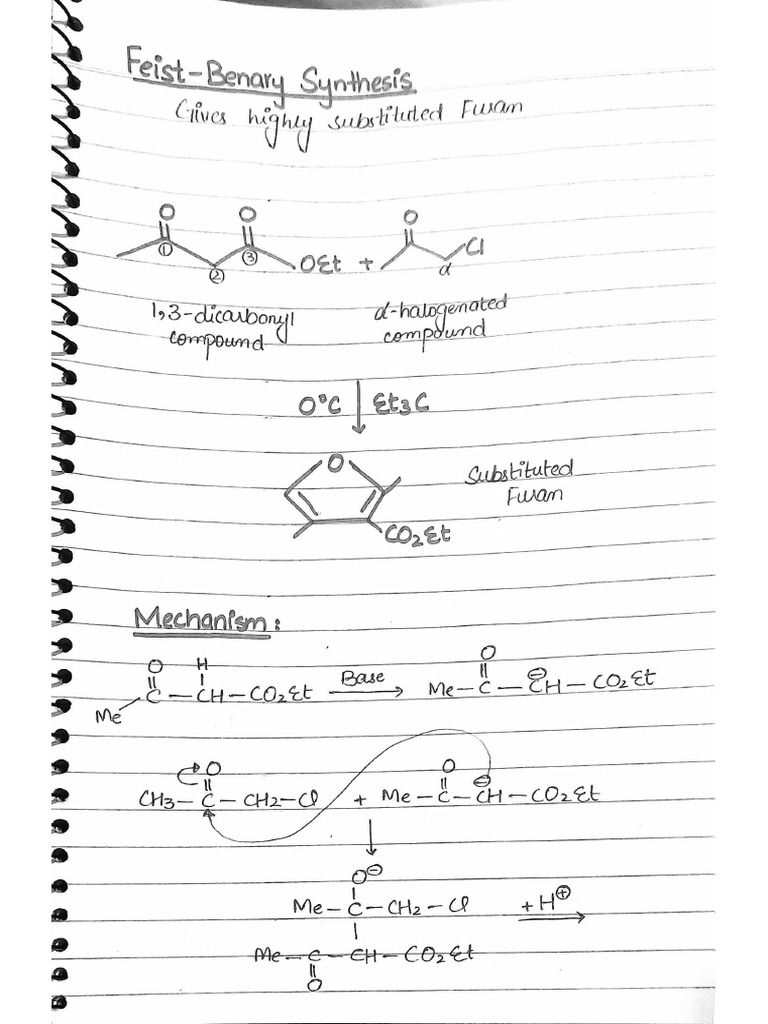 Feist-Benary Synthesis
Gives highly substituted Furan
O O O
① ② ③ OEt + α Cl
1,3-dicarbonyl compound
α-halogenated compound
0°C Et3C
O
CO2Et
Substituted Furan
Mechanism:
O H
Me C — CH — CO2Et Base Me — C — CH — CO2Et O ⊖
O O ⊖
CH3 — C — CH2 — Cl + Me — C — CH — CO2Et
O⊖
Me — C — CH2 — Cl +H⊕
Me — C — CH — CO2Et
O